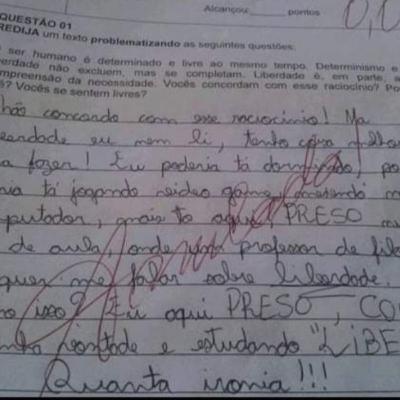 Alcançou: pontos 0,0
QUESTÃO 01
REDIJA um texto problematizando as seguintes questões:
ser humano é determinado e livre ao mesmo tempo. Determinismo e
erdade não excluem, mas se completam. Liberdade é, em parte, a
mpreensão da necessidade. Vocês concordam com esse raciocínio? Po
ê? Vocês se sentem livres?
não concordo com esse raciocínio! Na
erdade eu nem li, tanta coisa melhor
a fazer! Eu poderia tá dormindo, po
ria tá jogando video game,
putador, mais to aqui, PRESO
de aula, onde um professor de filo
quer me falar sobre liberdade.
isso? Eu aqui PRESO, CO
vontade e estudando "LIBE
Quanta ironia!!!